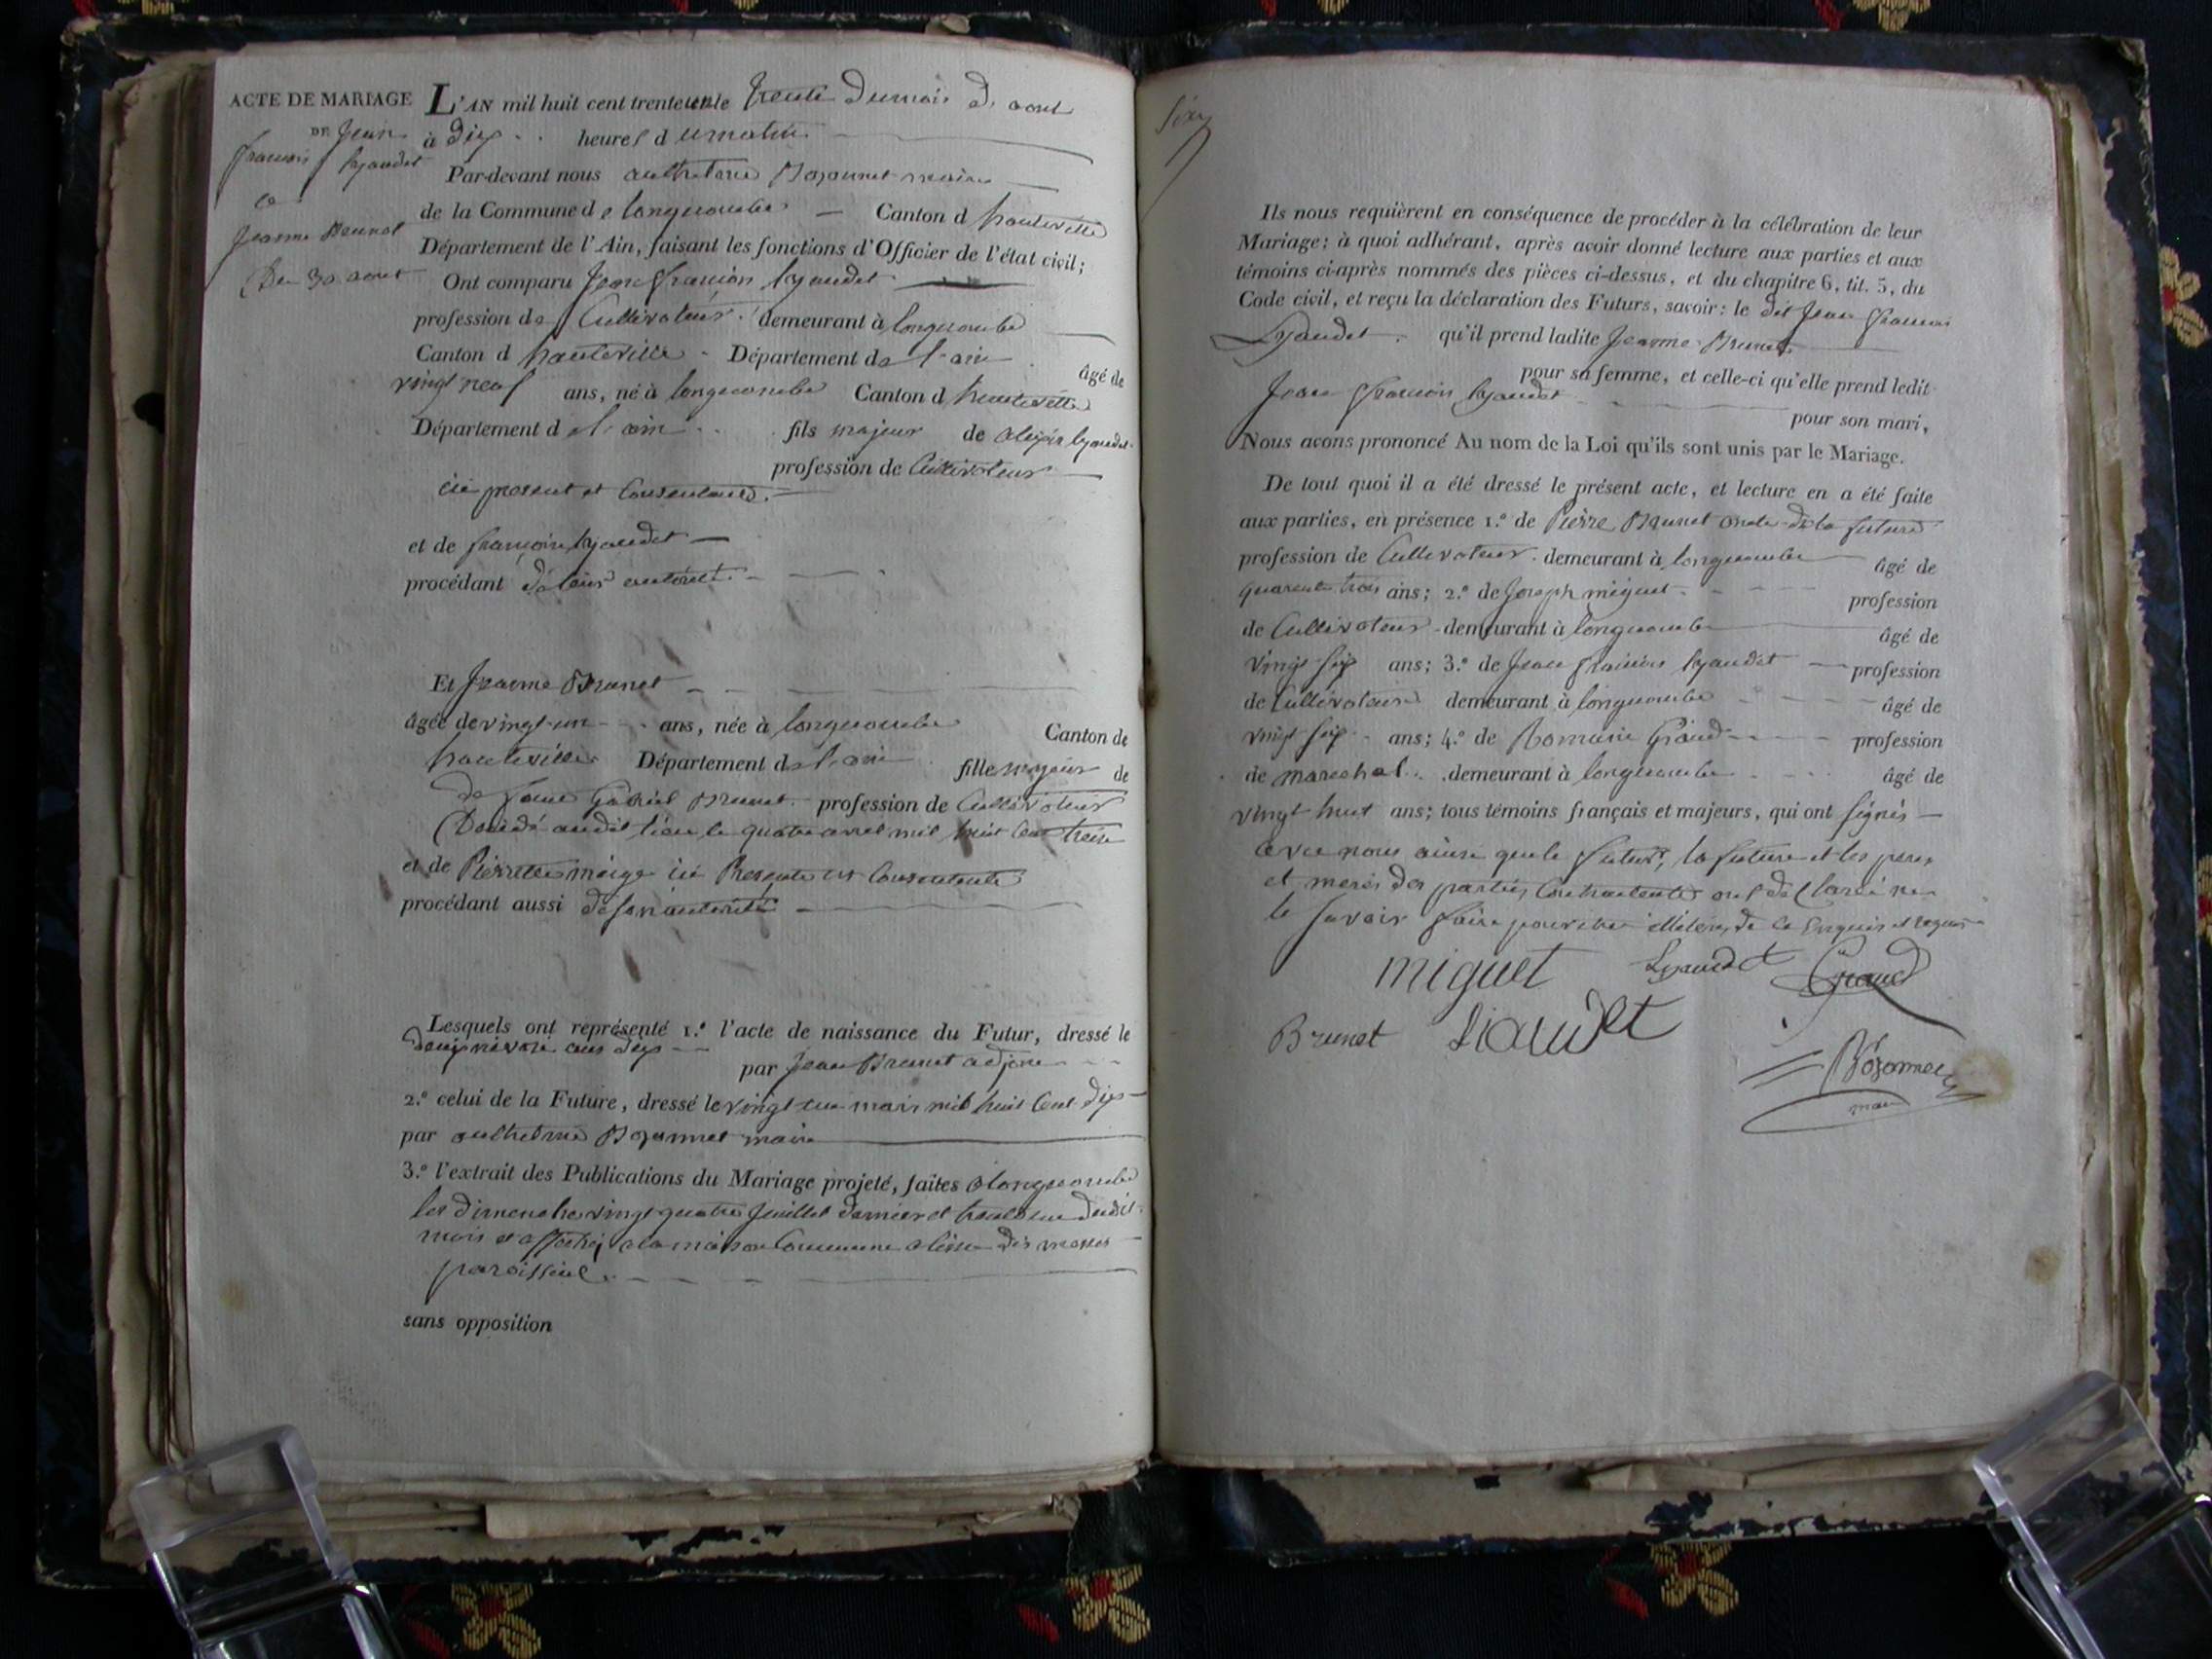 ACTE DE MARIAGE
DE Jean
françois lyaudet
et
Jeanne Brunet
Du 30 aout
L'AN mil huit cent trente un le trente du mois d'aout
à dix heures du matin
Par-devant nous anthelme Bozonnet maire
de la Commune de longecombe Canton d hauteville
Département de l'Ain, faisant les fonctions d'Officier de l'état civil;
Ont comparu Jean françois lyaudet
profession de Cultivateur demeurant à longecombe
Canton d hauteville Département de l'ain âgé de
vingt neuf ans, né à longecombe Canton d hauteville
Département de l'ain fils majeur de lyaudet
profession de Cultivateur
ici present et Consentant
et de françoise lyaudet
procédant de leur autorité
Et Jeanne Brunet
âgée de vingt-un ans, née à longecombe Canton de
hauteville Département de l'ain fille majeur de
de Gabriel Brunet profession de Cultivateur
Décédé audit lieu le quatre avril mil huit Cent treize
et de Pierrette maige ici Presente et Consentente
procédant aussi de son autorité
Lesquels ont représenté 1.º l'acte de naissance du Futur, dressé le
nivose an dix
par Jean Brunet adjoint
2.º celui de la Future, dressé le vingt un mars mil huit Cent dix
par anthelme Bozonnet maire
3.º l'extrait des Publications du Mariage projeté, faites a longecombe
les dimenche vingt quatre Juillet dernier et trente un dudit
mois et affiché a la maison Commune a lissue des messes
paroissial
sans opposition
Six
Ils nous requièrent en conséquence de procéder à la célébration de leur
Mariage; à quoi adhérant, après avoir donné lecture aux parties et aux
témoins ci-après nommés des pièces ci-dessus, et du chapitre 6, tit. 5, du
Code civil, et reçu la déclaration des Futurs, savoir: le dit Jean françois
Lyaudet qu'il prend ladite Jeanne Brunet
pour sa femme, et celle-ci qu'elle prend ledit
Jean françois lyaudet
pour son mari,
Nous avons prononcé Au nom de la Loi qu'ils sont unis par le Mariage.
De tout quoi il a été dressé le présent acte, et lecture en a été faite
aux parties, en présence 1.º de Pierre Brunet oncle de la future
profession de Cultivateur demeurant à longecombe âgé de
quarente trois ans; 2.º de Joseph miguet profession
de Cultivateur demeurant à longecombe âgé de
vingt six ans; 3.º de Jean françois lyaudet profession
de Cultivateur demeurant à longecombe âgé de
vingt six ans; 4.º de Romain Giraud profession
de marechal demeurant à longecombe âgé de
vingt huit ans; tous témoins français et majeurs, qui ont signés
avec nous ainsi que le futur, la future et les peres
et meres des parties Contractentes ont déclaré ne
le savoir faire pour etre illiteré de ce Enquis et requis
miguet Lyaudet Giraud
Brunet Liaudet
Bozonnet
maire